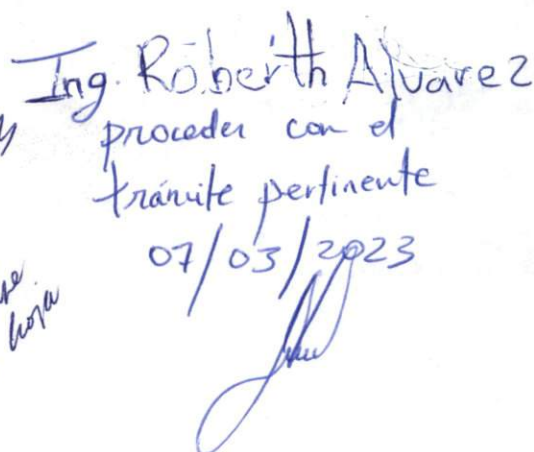 Ing. Róberth Alvarez
proceder con el
trámite pertinente
07/03/2023
hoja